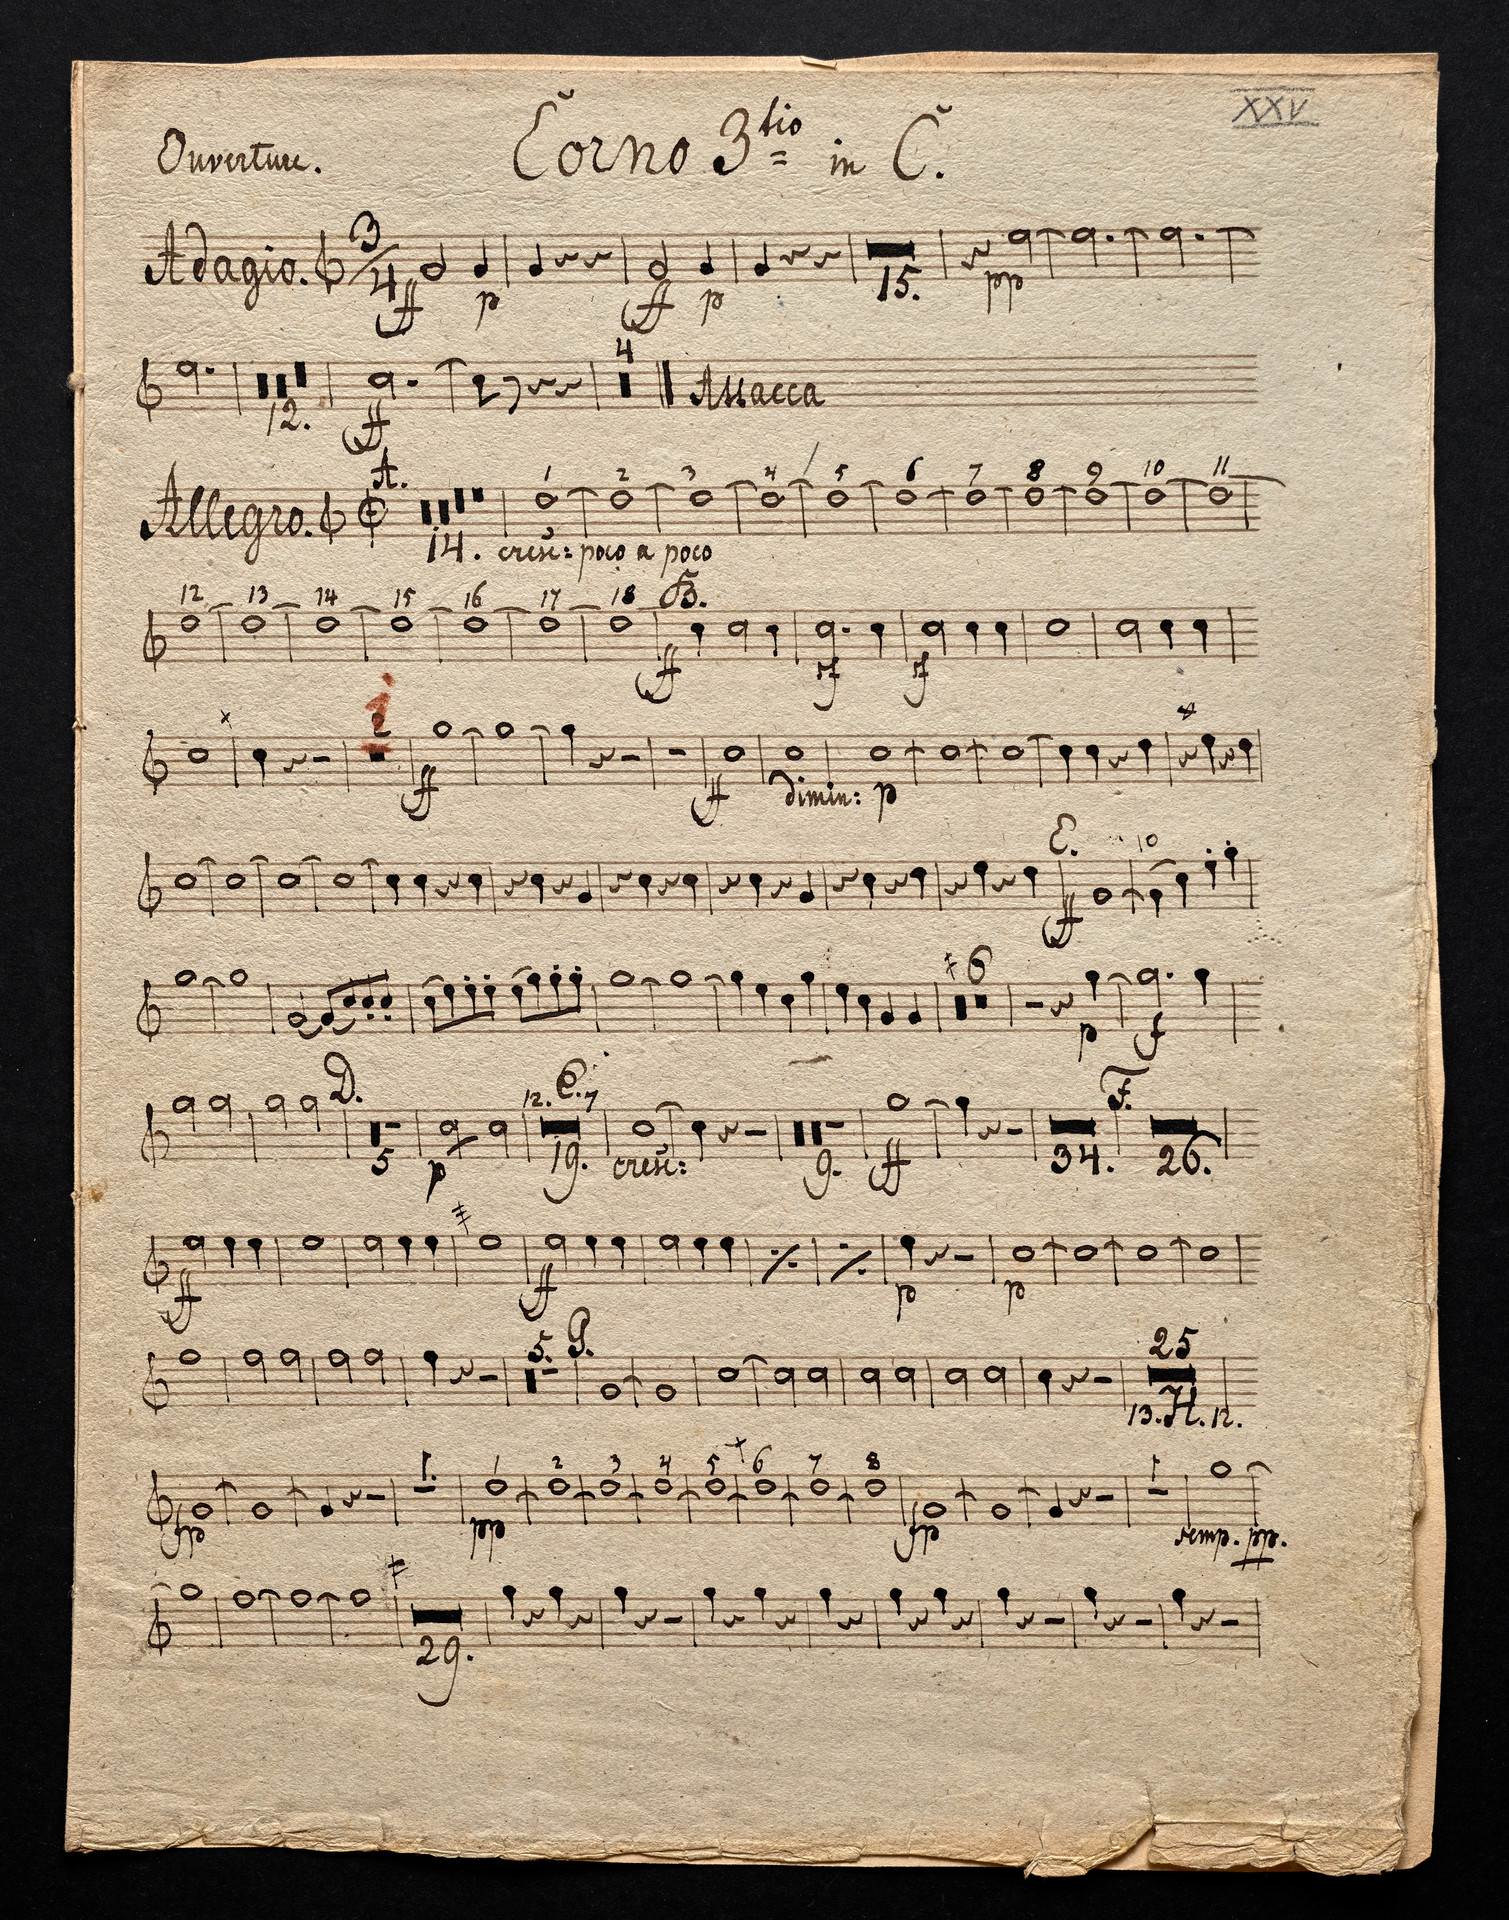 XXV
Ouverture. Corno 3tio in C.
Adagio. 3/4 ff p ff p 15. pp
12. ff 4 Attacca
Allegro. A. 14. 1 2 3 4 5 6 7 8 9 10 11
cresc: poco a poco
12 13 14 15 16 17 18 B.
ff sf sf
ff ff dimin: p
E. 10
ff
6
p f
D. 12. C. 7 F.
5 p 19. cresc: 9. ff 34. 26.
ff ff p p
5. G. 25
13. H. 12.
1. 1 2 3 4 5 6 7 8 1
fp pp fp semp. pp.
29.